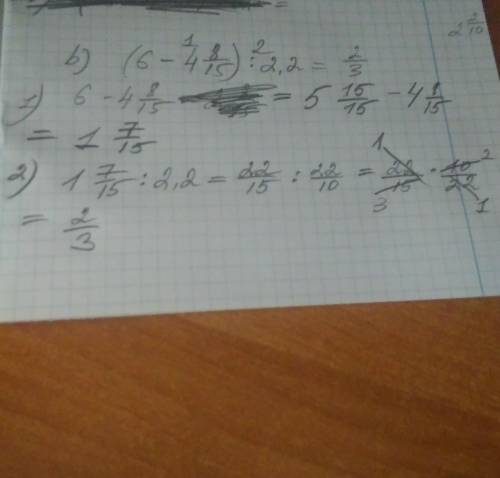 2 2/10
b) (6 - 4 8/15) : 2,2 = 2/3
1 2
1) 6 - 4 8/15 = 5 15/15 - 4 8/15
= 1 7/15
2) 1 7/15 : 2,2 = 22/15 : 22/10 = 22/15 · 10/22
1 2 3 1
= 2/3